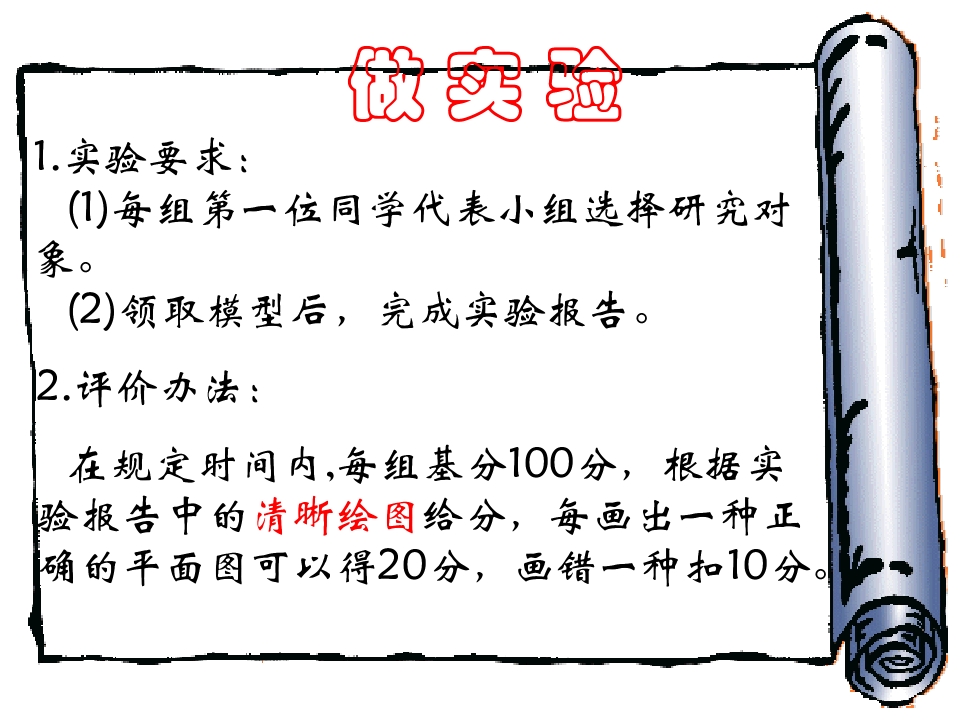 做实验
1.实验要求：
(1)每组第一位同学代表小组选择研究对
象。
(2)领取模型后，完成实验报告。
2.评价办法：
在规定时间内,每组基分100分，根据实
验报告中的清晰绘图给分，每画出一种正
确的平面图可以得20分，画错一种扣10分。